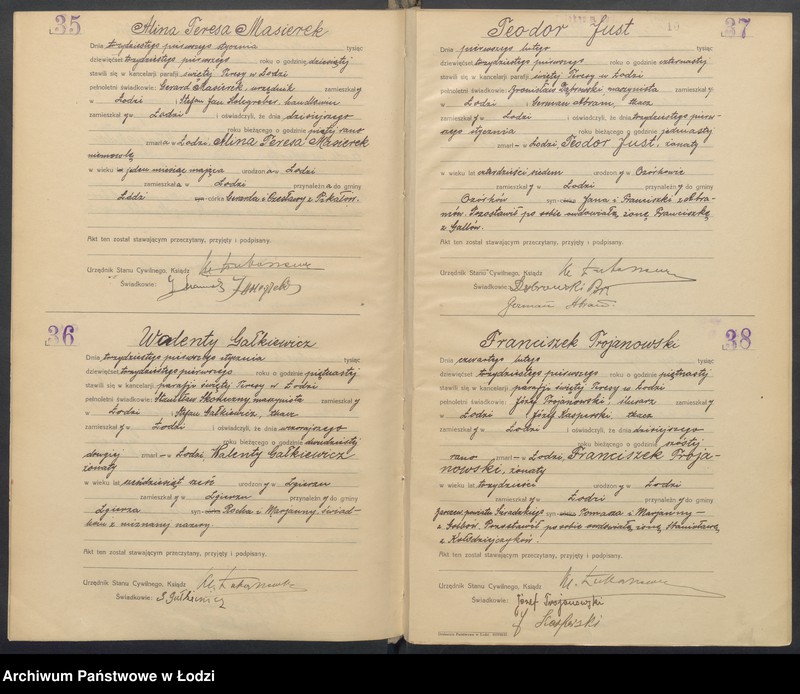 35
Alina Teresa Masierek
Dnia trzydziestego pierwszego stycznia tysiąc
dziewięćset trzydziestego pierwszego roku o godzinie dziewiątej
stawili się w kancelarji parafji świętej Teresy w Łodzi
pełnoletni świadkowie: Gerard Masierek, urzędnik zamieszkały
w Łodzi i Stefan Jan Holcgreber, handlowiec
zamieszkały w Łodzi i oświadczyli, że dnia dzisiejszego
roku bieżącego o godzinie piątej rano
zmarła w Łodzi, Alina Teresa Masierek
niemowlę
w wieku jeden miesiąc mająca urodzona w Łodzi
zamieszkała w Łodzi przynależna do gminy
Łódź córka Gerarda i Czesławy z Pikałów.
Akt ten został stawającym przeczytany, przyjęty i podpisany.
Urzędnik Stanu Cywilnego, Ksiądz
Świadkowie:
36
Walenty Gałkiewicz
Dnia trzydziestego pierwszego stycznia tysiąc
dziewięćset trzydziestego pierwszego roku o godzinie piętnastej
stawili się w kancelarji parafji świętej Teresy w Łodzi
pełnoletni świadkowie: Stanisław Skowrony, maszynista zamieszkały
w Łodzi i Stefan Gałkiewicz, tkacz
zamieszkały w Łodzi i oświadczyli, że dnia wczorajszego
roku bieżącego o godzinie dwudziestej
drugiej zmarł w Łodzi, Walenty Gałkiewicz
żonaty
w wieku lat sześćdziesiąt sześć urodzony w Zgierzu
zamieszkały w Zgierzu przynależny do gminy
Zgierza syn Rocha i Marjanny, świad-
kom z nieznanej nazwy.
Akt ten został stawającym przeczytany, przyjęty i podpisany.
Urzędnik Stanu Cywilnego, Ksiądz
Świadkowie: S. Gałkiewicz
10 37
Teodor Just
Dnia pierwszego lutego tysiąc
dziewięćset trzydziestego pierwszego roku o godzinie czternastej
stawili się w kancelarji parafji świętej Teresy w Łodzi
pełnoletni świadkowie: Bronisław Dąbrowski, maszynista zamieszkały
w Łodzi i German Abram, tkacz
zamieszkały w Łodzi i oświadczyli, że dnia trzydziestego pierw-
szego stycznia roku bieżącego o godzinie jedenastej
zmarł w Łodzi, Teodor Just, żonaty
w wieku lat czterdzieści siedem urodzony w Ozorkowie
zamieszkały w Łodzi przynależny do gminy
Ozorków syn Jana i Franciszki z Abra-
mów. Pozostawił po sobie owdowiałą żonę Franciszkę
z Gallów.
Akt ten został stawającym przeczytany, przyjęty i podpisany.
Urzędnik Stanu Cywilnego, Ksiądz
Świadkowie: Dąbrowski Br.
German Abram
38
Franciszek Trojanowski
Dnia czwartego lutego tysiąc
dziewięćset trzydziestego pierwszego roku o godzinie piętnastej
stawili się w kancelarji parafji świętej Teresy w Łodzi
pełnoletni świadkowie: Józef Trojanowski, ślusarz zamieszkały
w Łodzi i Józef Kasperski, tkacz
zamieszkały w Łodzi i oświadczyli, że dnia dzisiejszego
roku bieżącego o godzinie szóstej
rano zmarł w Łodzi, Franciszek Troja-
nowski, żonaty
w wieku lat trzydzieści urodzony w Łodzi
zamieszkały w Łodzi przynależny do gminy
powiatu Sieradzkiego syn Tomasza i Marjanny
Pozostawił po sobie owdowiałą żonę Stanisławę
z Kołodziejczyków.
Akt ten został stawającym przeczytany, przyjęty i podpisany.
Urzędnik Stanu Cywilnego, Ksiądz
Świadkowie: Józef Trojanowski
J Kasperski
Archiwum Państwowe w Łodzi